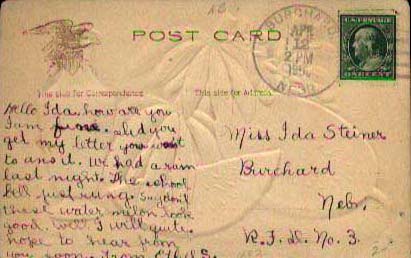 POST CARD
BURCHARD
APR
12
2 PM
NEBR.
U.S. POSTAGE
ONE CENT
This side for Correspondence
This side for Address
Hello Ida, how are you
I am fine. did you
get my letter you
to ans it. We had a rain
last night. The school
bell just rung. Say don't
these water melon look
good. well I will quite.
hope to hear from
you soon. from Ethel S.
Miss Ida Steiner
Burchard
Nebr.
R.F.D. No. 3.